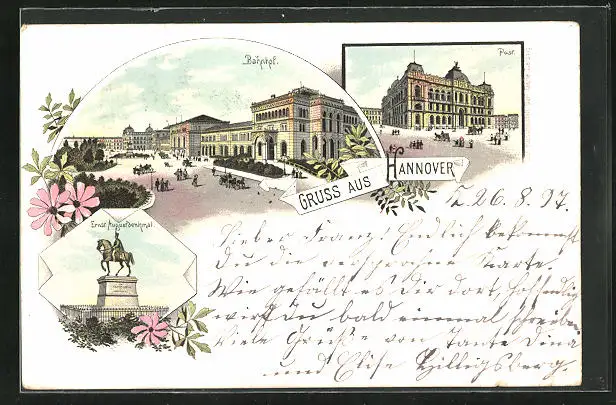 Bahnhof.
Post.
GRUSS AUS HANNOVER
Ernst Augustdenkmal.
26.8.97.
Lieber Franz! Endlich bekommst
du die versprochene Karte.
Wie gefällt es Dir dort, hoffendlig
wirst du bald einmal schreiben
Viele Grüße von Tante Dina
und Elise Hilligsberg.